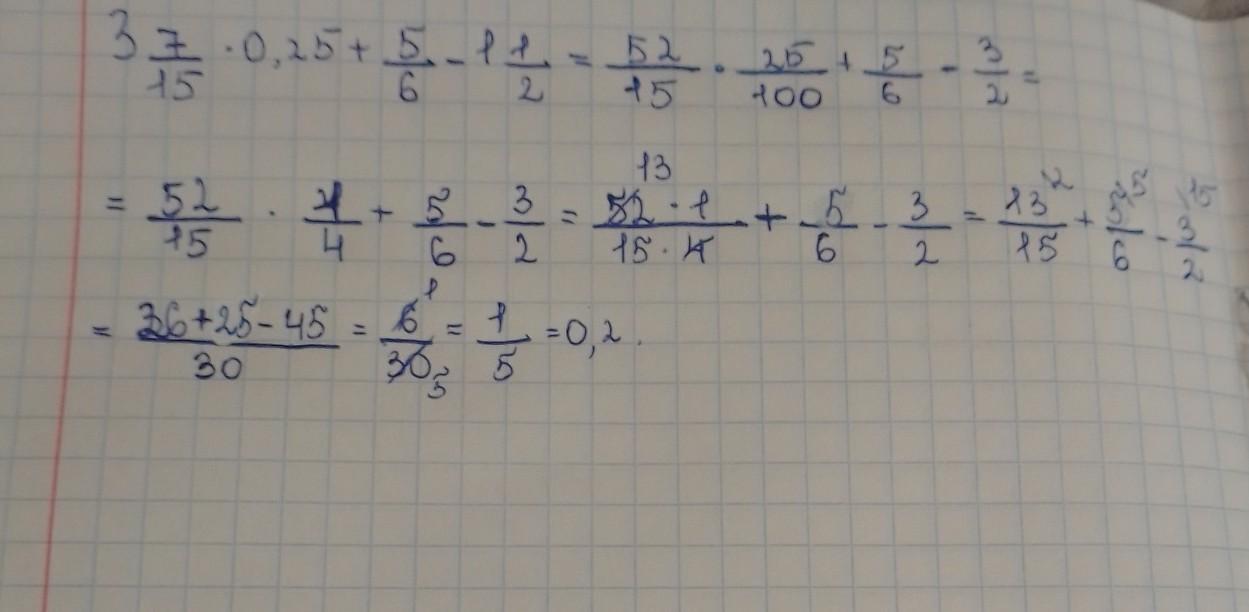 3 7/15 · 0,25 + 5/6 - 1 1/2 = 52/15 · 25/100 + 5/6 - 3/2 =
= 52/15 · 1/4 + 5/6 - 3/2 = 52 · 1 13/15 · 4 + 5/6 - 3/2 = 13 2/15 + 5 5/6 - 3 15/2
= 26+25-45/30 = 6 1/30 5 = 1/5 = 0,2.